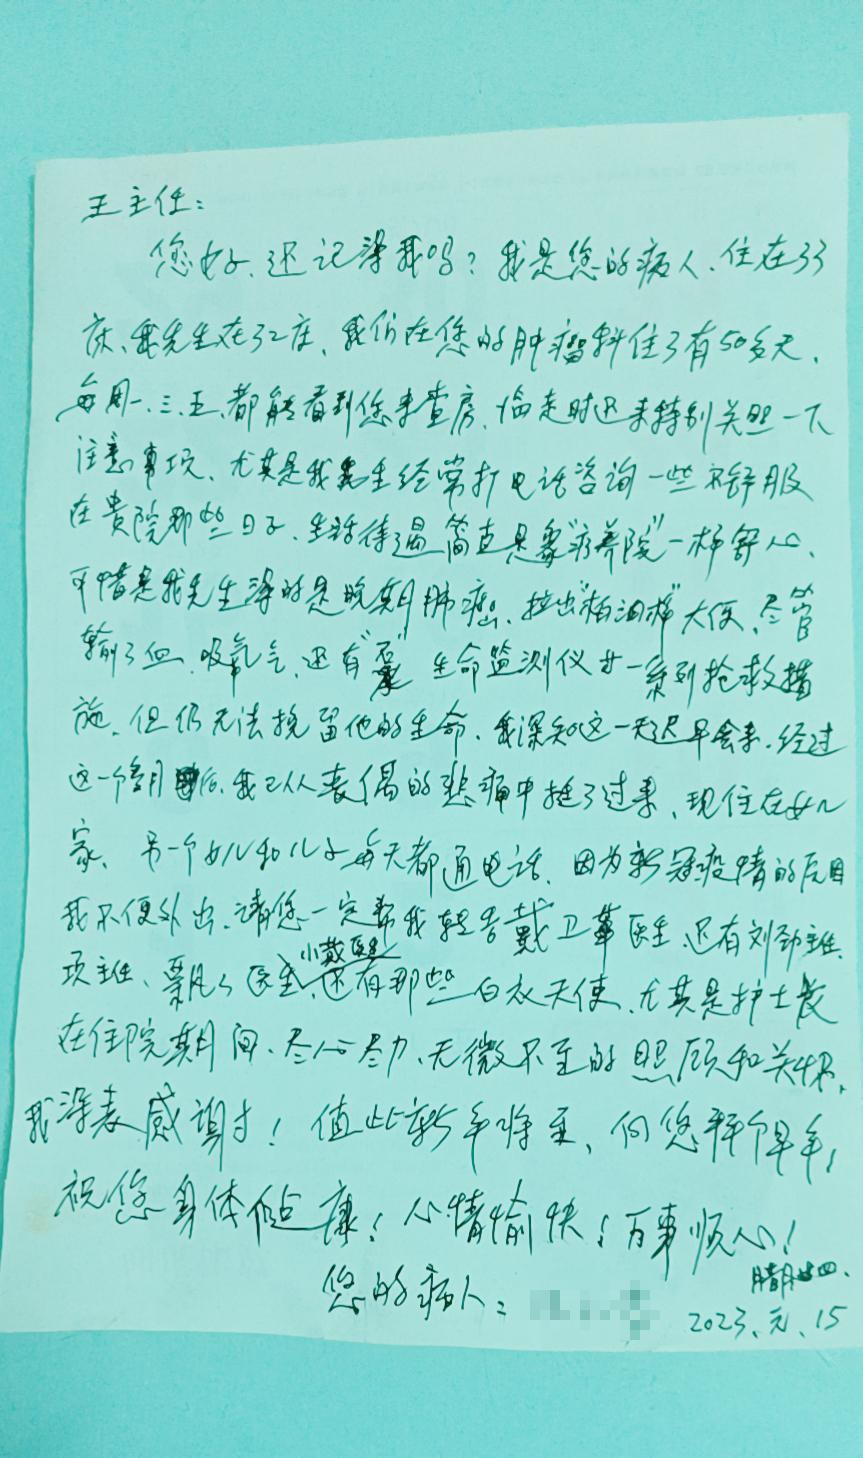 王主任：
您好、还记得我吗？我是您的病人、住在33
床、我先生在32床、我们在您的肿瘤科住了有50多天、
每周一、三、五、都能看到您来查房、临走时还来特别关照一下
注意事项、尤其是我先生经常打电话咨询一些不舒服
在贵院那些日子、生活待遇简直是像“疗养院”一样舒心、
可惜是我先生得的是晚期肺癌、拉出“柏油样”大便、尽管
输了血、吸氧气、还有 生命监测仪廿一系列抢救措
施、但仍无法挽留他的生命、我深知这一天迟早会来、经过
这一个多月 后、我已从丧偶的悲痛中挺了过来、现住在女儿
家、另一个女儿和儿子每天都通电话、因为新冠疫情的原因
我不便外出、请您一定帮我转告戴卫华医生、还有刘劲主任、
项主任、飘飘医生、小戴医生、还有那些白衣天使、尤其是护士长
在住院期间、尽心尽力、无微不至的照顾和关怀、
我深表感谢！值此新年将至、向您拜个早年！
祝您身体健康！心情愉快！万事顺心！
您的病人：
腊月廿四、
2023、元、15